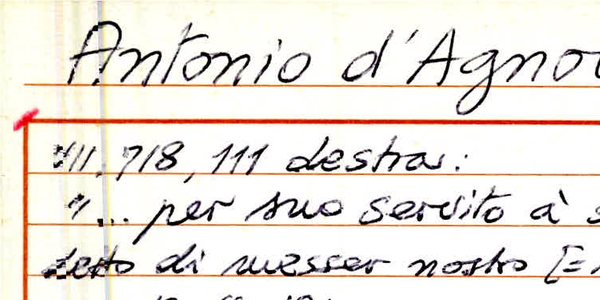 Antonio d'Agno
VII. 718, 111 destra:
"... per suo servito à s
detto di messer nostro [=